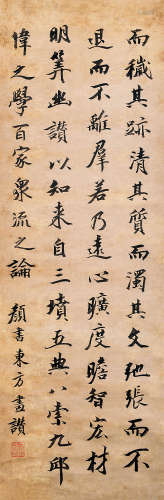 而穢其跡清其質而濁其文弛張而不
退而不離羣若乃遠心曠度贍智宏材
明筭幽讚以知來自三墳五典八索九邱
偉之學百家衆流之論
顏書東方畫讚